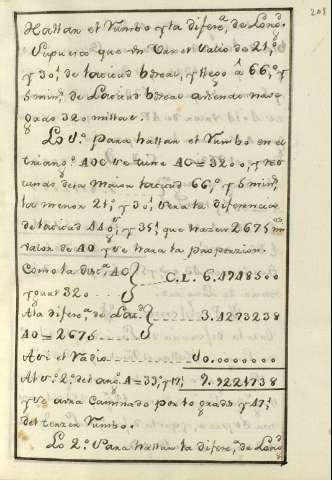 201
Hallar el Rumbo y la difer.ª de Long.d
Supuesto que un Vaxel salio de 21,º
y 30' de latitud boreal, y llegó â 66,º y
5 min.s de Latitud boreal aviendo nave
gado 320 millas.
Lo 1.º para hallar el Rumbo en el
triang.º ADC se tiene AC = 3200, y res
tando de la Maior latitud 66,º y 5 min.s
la menor 21,º y 30', sera la diferencia
de latitud 44,º y 35', que hazen 2675 m
valor de AD y se hara la proporzion.
Como la dist.ª AC
y gual 320 C. L. 6.4948500
A la difer.ª de Lat.d
AD = 2675 3.4273238
Asi el Radio 10.0000000
Al s.º 2.º del ang.º A = 33,º y 17', 9.9221738
y se avra Caminado por 33 grads y 17'
del tercer Rumbo.
Lo 2.º para hallar la difere.ª de Long.d